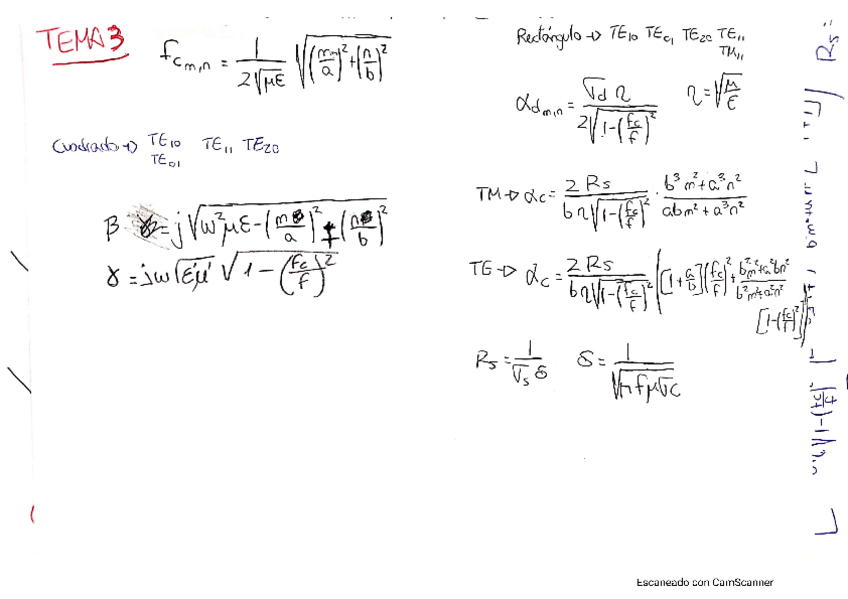 TEMA 3
f_{c m,n} = \frac{1}{2\sqrt{με}} \sqrt{(\frac{m}{a})^2 + (\frac{n}{b})^2}
Cuadrado → TE10 TE11 TE20
TE01
β = j\sqrt{ω^2με - (\frac{m}{a})^2 + (\frac{n}{b})^2}
γ = jω\sqrt{ε'μ'} \sqrt{1 - (\frac{fc}{f})^2}
Rectángulo → TE10 TE01 TE20 TE11
TM11
α_{d m,n} = \frac{σd η}{2\sqrt{1-(\frac{fc}{f})^2}} η = \sqrt{\frac{μ}{ε}}
TM → αc = \frac{2 Rs}{bη\sqrt{1-(\frac{fc}{f})^2}} · \frac{b^3m^2+a^3n^2}{abm^2+a^3n^2}
TE → αc = \frac{2 Rs}{bη\sqrt{1-(\frac{fc}{f})^2}} ([1+\frac{a}{b}](\frac{fc}{f})^2 + \frac{b^2m^2+a^2bn^2}{b^2m^2+a^2n^2}
[1-(\frac{fc}{f})^2])
Rs = \frac{1}{σs δ} δ = \frac{1}{\sqrt{π f μ σc}}
Rs =
Escaneado con CamScanner